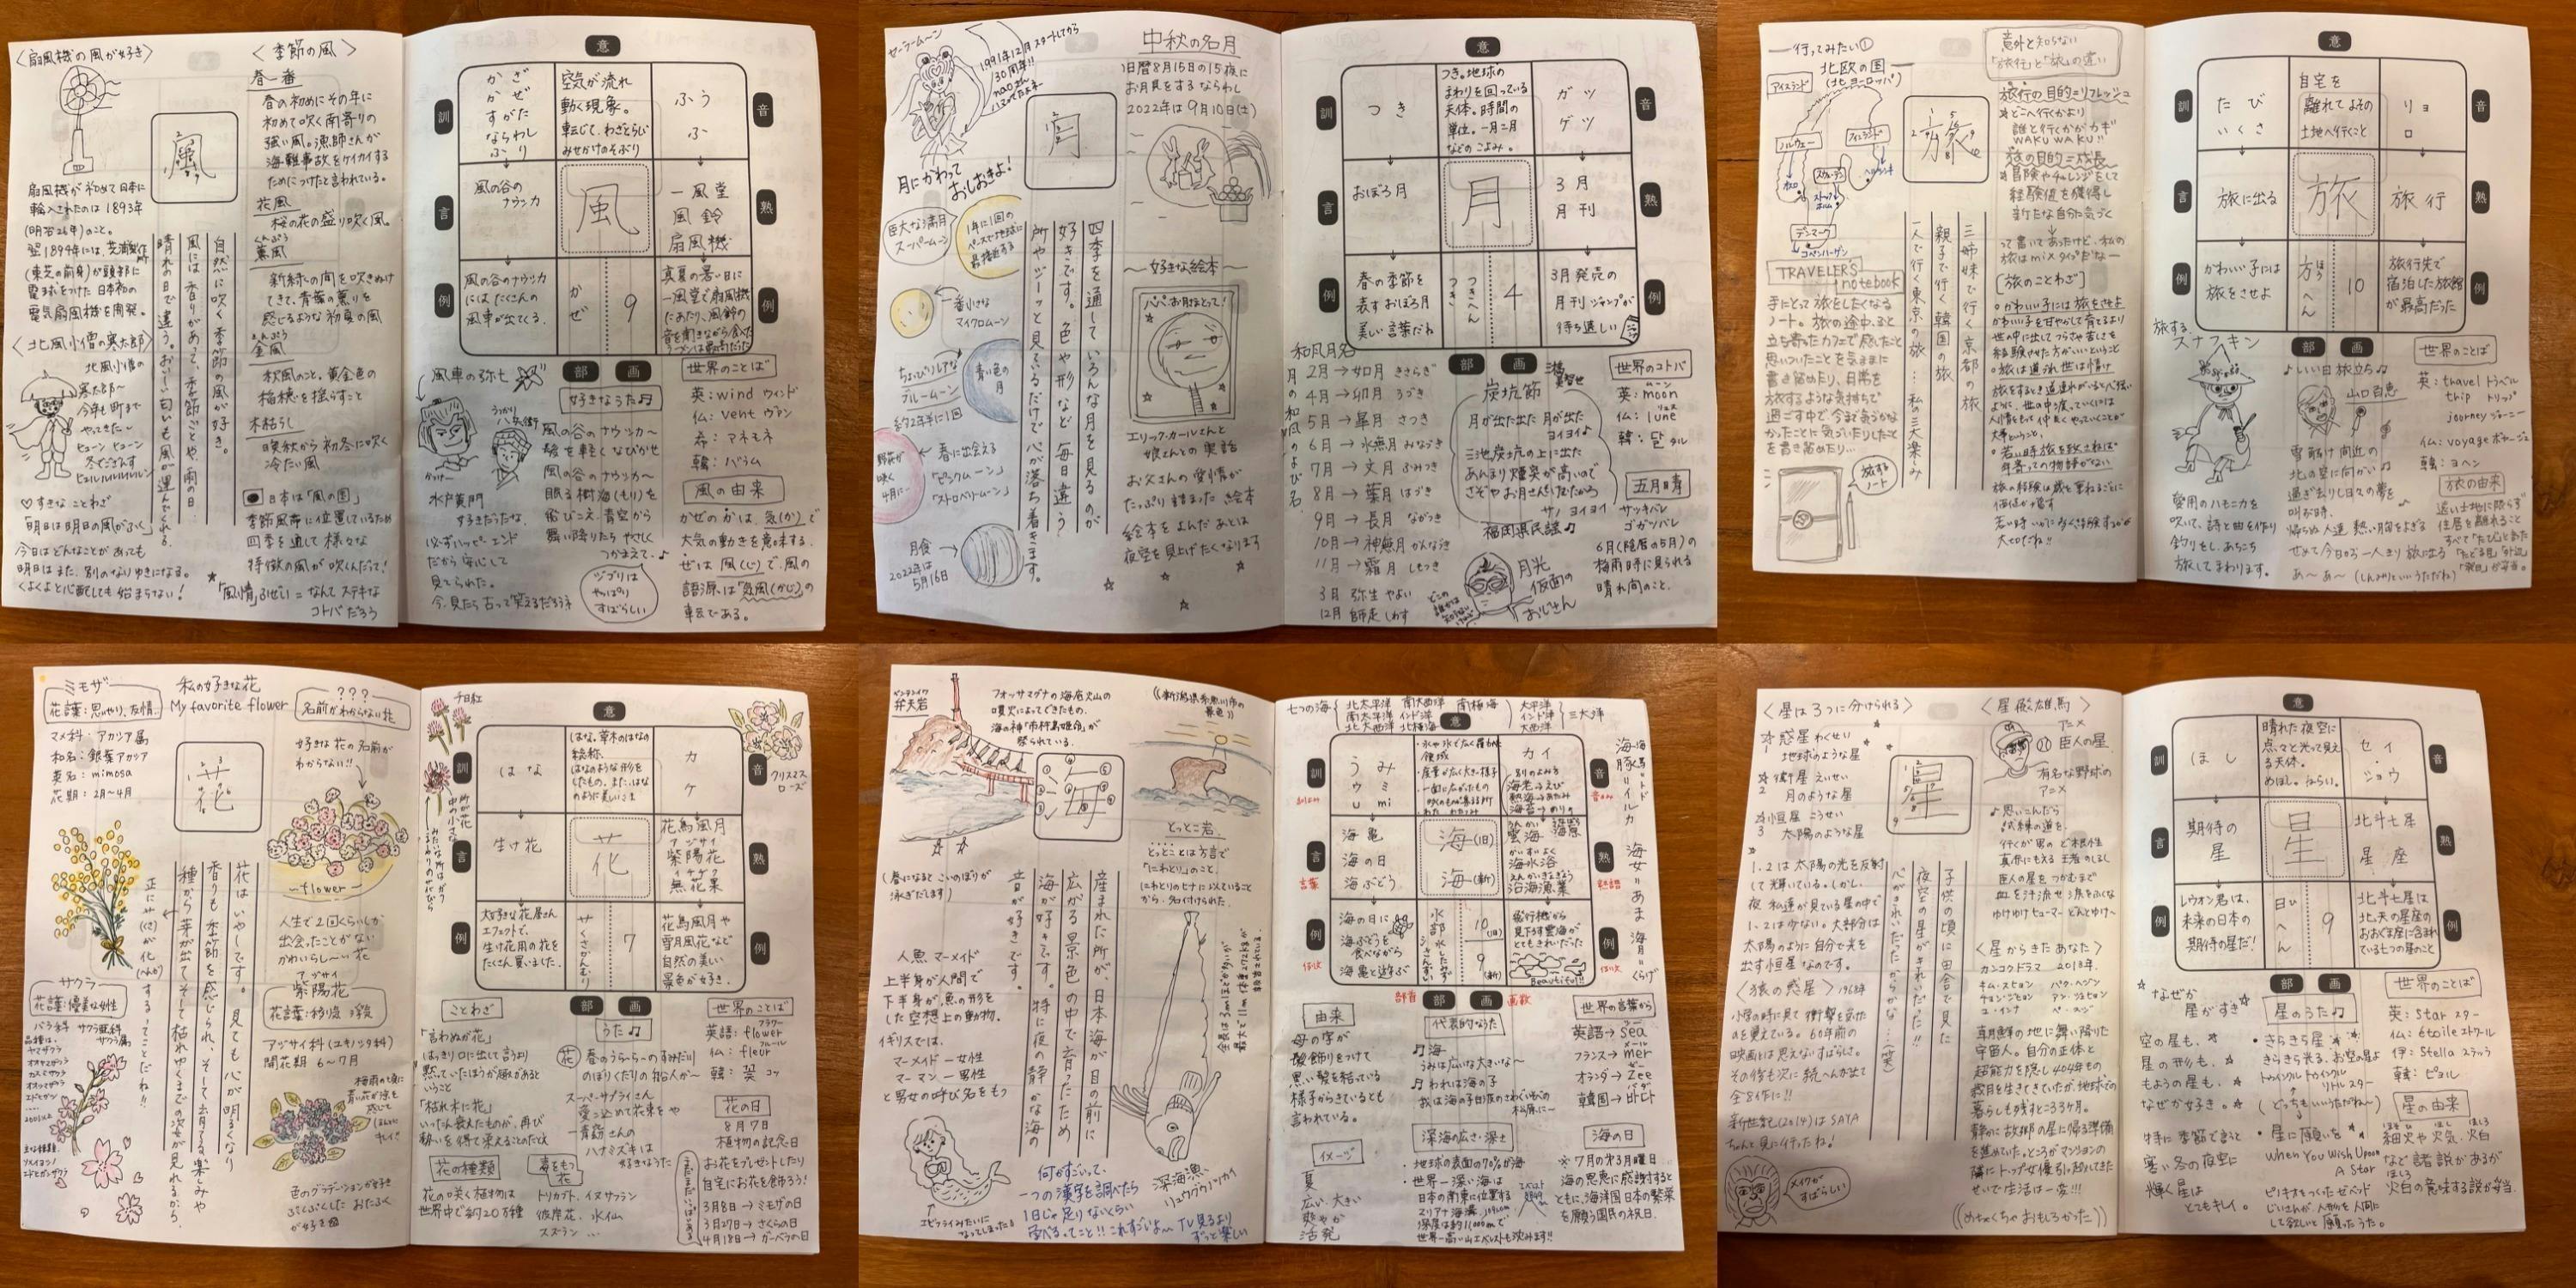 〈扇風機の風が好き〉
扇風機が初めて日本に
輸入されたのは1893年
(明治26年)のこと。
翌1894年には、芝浦製作所
(東芝の前身)が頭部に
電球をつけた日本初の
電気扇風機を開発。
〈北風小僧の寒太郎〉
北風小僧の
寒太郎〜
今年も町まで
やってきた〜
ヒューン ヒューン
冬でござんす
ヒュルルルルルルン
♡すきなことわざ
「明日は明日の風がふく」
今日はどんなことがあっても
明日はまた、別のなりゆきになる。
くよくよと心配しても始まらない!
風
自然に吹く季節の風が好き。
風には香りがあって、季節ごとや、雨の日・
晴れの日で違う。おいしい匂いも風が運んでくれる。
〈季節の風〉
春一番
春の初めにその年に
初めて吹く南寄りの
強い風。漁師さんが
海難事故をケイカイする
ためにつけたと言われている。
花風
桜の花の盛り吹く風
くんぷう
薫風
新緑の間を吹きぬけ
てきて、青葉の薫りを
感じるような初夏の風
金風
秋風のこと。黄金色の
稲穂を揺らすこと
木枯らし
晩秋から初冬に吹く
冷たい風
●日本は「風の国」
季節風帯に位置しているため
四季を通して様々な
特徴の風が吹くんだって!
★「風情」ふぜい=なんてステキな
コトバだろう
意
訓
かぎ
かぜ
すがた
ならわし
ふり
空気が流れ
動く現象。
転じて、わざとらしい
みせかけのそぶり
ふう
ふ
音
言
風の谷の
ナウシカ
風
一風堂
風鈴
扇風機
熟
例
風の谷のナウシカ
にはたくさんの
風車が出てくる。
かぜ
9
真夏の暑い日に
一風堂で扇風機
にあたり、風鈴の
音を聞きながら食べた
ラーメンは最高だった
例
部
画
風車の弥七
うっかり
八兵衛
水戸黄門
すきだったな。
必ずハッピーエンド
だから安心して
見てられた。
今、見たら古って笑えるだろうネ
好きなうた♫
風の谷のナウシカ〜
髪を軽くなびかせ
風の谷のナウシカ〜
眠る樹海(もり)を
飛びこえ、青空から
舞い降りたら やさしく
つかまえて、♪
ジブリは
やっぱり
すばらしい
世界のことば
英:wind ウィンド
仏:vent ヴァン
寿:マネモネ
韓:バラム
風の由来
かぜのかは、気(か)で
大気の動きを意味する。
ぜは風(じ)で、風の
語源は「気風(かじ)」の
転である。
セーラームーン
1991年12月スタートしてから
30周年!!
月にかわって
おしおきよ!
巨大な満月
スーパームーン
1年に1回の
ペースで地球に
最接近する
一番小さな
マイクロムーン
ちょっぴりレアな
ブルームーン
約2年半に1回
青い色の
月
野菜が
咲く
4月に
春に出会える
「ピンクムーン」
「ストロベリームーン」
月食
2022年は
5月16日
月
中秋の名月
旧暦8月15日の15夜に
お月見をするならわし
2022年は9月10日(土)
四季を通していろんな月を見るのが
好きです。色や形など毎日違う
所やジーッと見ているだけで心が落ち着きます。
〜好きな絵本〜
パパ、お月さまとって!
エリック・カールさんと
娘さんとの実話
お父さんの愛情が
たっぷり詰まった絵本
絵本をよんだあとは
夜空を見上げたくなります
意
訓
つき
つき。地球の
まわりを回っている
天体。時間の
単位。一月二月
などのこよみ。
ガツ
ゲツ
音
言
おぼろ月
月
3月
月刊
熟
例
春の季節を
表すおぼろ月
美しい言葉だね
つき
つきへん
4
3月発売の
月刊ジャンプが
待ち遠しい
例
部
画
和風月名
月の和風のよび名
2月→如月 きさらぎ
4月→卯月 うづき
5月→皐月 さつき
6月→水無月 みなづき
7月→文月 ふみつき
8月→葉月 はづき
9月→長月 ながつき
10月→神無月 かんなづき
11月→霜月 しもつき
3月 弥生 やよい
12月 師走 しわす
炭坑節
月が出た出た 月が出た
ヨイヨイ♪
三池炭坑の上に出た
あんまり煙突が高いので
さぞやお月さんけむたかろ
サノ ヨイヨイ
福岡県民謡♫
月光
仮面の
おじさん
世界のコトバ
英:moon ムーン
仏:lune リュヌ
韓:달 タル
五月晴
サツキバレ
ゴガツバレ
6月(陰暦の5月)の
梅雨時に見られる
晴れ間のこと。
行ってみたい①
北欧の国
(北ヨーロッパ)
アイスランド
ノルウェー
フィンランド
オスロ
スウェーデン
ヘルシンキ
ストックホルム
デンマーク
コペンハーゲン
TRAVELER'S
notebook
手にとって旅をしたくなる
ノート。旅の途中、ふと
立ち寄ったカフェで感じたこと
思いついたことを気ままに
書き留めたり、日常を
旅するような気持ちで
過ごす中で、今まで気づかな
かったことに気づいたりしたこと
を書き留めたり…
旅する
ノート
旅
意外と知らない
「旅行」と「旅」の違い
旅行の目的=リフレッシュ
どこへ行くかより
誰と行くかがカギ
WAKU WAKU!!
旅の目的=成長
冒険やチャレンジをして
経験値を獲得し
新たな自分に気づく
って書いてあったけど、私の
旅はmixタイプだな〜
[旅のことわざ]
○かわいい子には旅をさせよ
かわいい子を甘やかして育てるより
世の中に出してつらさや苦しさを
経験させた方がいいということ
○旅は道連れ世は情け
三姉妹で行く京都の旅
親子で行く韓国の旅
一人で行く東京の旅…私の三大楽しみ
意
訓
たび
いくさ
自宅を
離れてよその
土地へ行くこと
リョ
ロ
音
言
旅に出る
旅
旅行
熟
例
かわいい子には
旅をさせよ
方へん
ほう
10
旅行先で
宿泊した旅館
が最高だった
例
部
画
旅する
スナフキン
愛用のハモニカを
吹いて、詩と曲を作り
釣りをし、あちこち
旅してまわります。
♪いい日旅立ち♫
山口百恵
雪解け間近の
北の空に向かい♫
過ぎ去りし日々の夢を
叫ぶ時、
帰らぬ人達 熱い胸をよぎる
せめて今日から一人きり 旅に出る
あ〜あ〜(しんみりといううただね)
世界のことば
英:travel トラベル
trip トリップ
journey ジャーニー
仏:voyage ボヤージュ
韓:ヨヘン
旅の由来
ミモザ
花言葉:思いやり、友情
マメ科・アカシア属
和名:銀葉アカシア
英名:mimosa
花期:2月〜4月
私の好きな花
My favorite flower
???
名前がわからない花
好きな花の名前が
わからない!!
花
〜flower〜
人生で2回くらいしか
出会ったことがない
かわいらし〜い花
アジサイ
紫陽花
アジサイ科(ユキノシタ科)
開花期 6〜7月
サクラ
花言葉:優美な女性
バラ科 サクラ亜科
サクラ属
花はいやしです。見ても心が明るくなり
香りも季節を感じられ、そして育てる楽しみや
種から芽が出てそして枯れゆくまでの姿が見れるから。
千日紅
クリスマス
ローズ
意
訓
はな
はな。草木のはなの
総称。
はなのような形を
したもの。また、はな
のように美しいこと
カ
ケ
音
言
生け花
花
花鳥風月
アジサイ
紫陽花
イチヂク
無花果
熟
例
大好きな花屋さん
エフェクトで、
生け花用の花を
たくさん買いました。
くさかんむり
7
花鳥風月や
雪月風花など
自然の美しい
景色が好き。
例
部
画
ことわざ
「言わぬが花」
はっきり口に出して言うより
黙っていたほうが趣があると
いうこと
「枯れ木に花」
いったん衰えたものが、再び
勢いを得て栄えることのたとえ
花の種類
花の咲く植物は
世界中で約20万種
うた♫
花
春のうらら〜のすみだ川
のぼりくだりの船人が〜
スーパーサプライさん
愛を込めて花束をや
一青窈さんの
ハナミズキは
好きなうた
毒をもつ
花
トリカブト、イヌサフラン
彼岸花、水仙
スズラン…
世界のことば
英語:flower フラワー
仏:fleur フルール
韓:꽃 コッ
花の日
8月7日
植物の記念日
お花をプレゼントしたり
自宅にお花を飾ろう!
3月8日→ミモザの日
3月27日→さくらの日
4月18日→ガーベラの日
弁天岩
フォッサマグナの海底火山の
噴火によってできたもの。
海の神「市杵島姫命」が
祭られている。
((新潟県糸魚川市の
景色))
海
(春になるとこいのぼりが
泳ぎだします)
とっとこ岩
とっとことは方言で
「にわとり」のこと。
にわとりのヒナに似ていること
から、名付けられた。
人魚 マーメイド
上半身が人間で
下半身が、魚の形を
した空想上の動物。
イギリスでは、
マーメイド―女性
マーマン―男性
と男女の呼び名をもつ
エビフライみたいに
なってしまった
産まれた所が、日本海が目の前に
広がる景色の中で育ったため
海が好きです。特に夜の静かな海の
音が好きです。
何がすごいって、
一つの漢字を調べたら
1日じゃ足りないくらい
学べるってこと!!これすごいよ〜TV見るより
ずっと楽しい
深海漁
リュウグウノツカイ
七つの海
北太平洋 南大西洋 南極海
南太平洋 インド洋
北大西洋 北極海
太平洋
インド洋
大西洋
三大洋
意
訓
うみ
ウミ
umi
カイ
別のよみ方
海老→えび
熱海→あたみ
海苔→のり
音
言
言葉
海亀
海の日
海ぶどう
海(旧)
海(新)
雲海
海水浴
沿海漁業
熟
熟語
例
海の日に
海ぶどうを
食べながら
海亀と遊ぶ
水部
さんずい
10(旧)
9(新)
飛行機から
見下ろす雲海が
とてもきれいだった
Beautiful!!
例
部
部首
画
画数
海豚=イルカ
海女=あま
海月=くらげ
由来
母の字が
髪飾りをつけて
黒い髪を結っている
様子からきているとも
言われている。
イメージ
夏
広い、大きい
爽やか
活発
代表的なうた
♫海
うみは広いな大きいな〜
♫われは海の子
我は海の子白波のさわぐいそべの
松原に〜
深海の広さ・深さ
・地球の表面の70%が海
・世界一深い海は
日本の南東に位置する
マリアナ海溝
深度は約11,000mで
世界一高い山エベレストも沈みます!!
世界の言葉から
英語→sea
フランス→mer
オランダ→Zee
韓国→바다
海の日
※7月の第3月曜日
海の恩恵に感謝すると
ともに、海洋国日本の繁栄
を願う国民の祝日。
〈星は3つに分けられる〉
1 惑星 わくせい
地球のような星
2 衛星 えいせい
月のような星
3 恒星 こうせい
太陽のような星
1.2は太陽の光を反射
して輝いている。しかし、
夜、私達が見ている星の中で
1.2は少ない。大部分は
太陽のように自分で光を
出す恒星なのです。
〈猿の惑星〉1968年
小学の時に見て衝撃を受けた
のを覚えている。60年前の
映画とは思えないすばらしさ。
その後も次々に続へんが出て
全8作に!!
新世紀(2014)はSAYA
ちゃんと見に行ったね!
メイクが
すばらしい
星
子供の頃に田舎で見た
夜空の星がきれいだった!!
心がきれいだったからかな…(笑)
〈星飛雄馬〉
アニメ
巨人の星
有名な野球の
アニメ
♪思いこんだら
試練の道を
行くが男のど根性
真赤にもえる王者のしるし
巨人の星をつかむまで
血と汗流せ涙をふくな
ゆけゆけヒューマ どんとゆけ〜
〈星からきたあなた〉
カンコクドラマ 2013年
キム・スヒョン
チョン・ジヒョン
ユ・インナ
パク・ヘジン
アン・ジェヒョン
朝鮮の地に舞い降りた
宇宙人。自分の正体と
超能力を隠し404年もの
歳月を生きてきていたが、地球での
暮らしも残すところ3ヶ月。
静かに故郷の星に帰る準備
を進めていた。ところがマンションの
隣にトップ女優が引っ越してきた
せいで生活は一変!!!
((めちゃくちゃおもしろかった))
意
訓
ほし
晴れた夜空に
点々と光って見え
る天体。
めぼし。ねらい。
セイ
・
ショウ
音
言
期待の
星
星
北斗七星
星座
熟
例
レウォン君は、
未来の日本の
期待の星だ!
日へん
ひ
9
北斗七星は
北の天の星座の
おおぐま座に含まれ
ている七つの星のこと
例
部
画
なぜか
星がすき
空の星も、
星の形も、
もようの星も、
なぜか好き。
特に季節で言うと
寒い冬の夜空に
輝く星は
とてもキレイ。
星のうた♫
・きらきら星
きらきら光る、お空の星よ
トゥインクル トゥインクル
リトル スター
(どっちもいいうただね〜)
・星に願いを
When You Wish Upon
A Star
ピノキオをつくったゼペット
じいさんが人形を人間に
して欲しいと願ったうた。
世界のことば
英:star スター
仏:étoile エトワール
伊:Stella ステッラ
韓:ピョル
星の由来
細火や火気、火白
など諸説があるが
火白の意味する説が妥当。